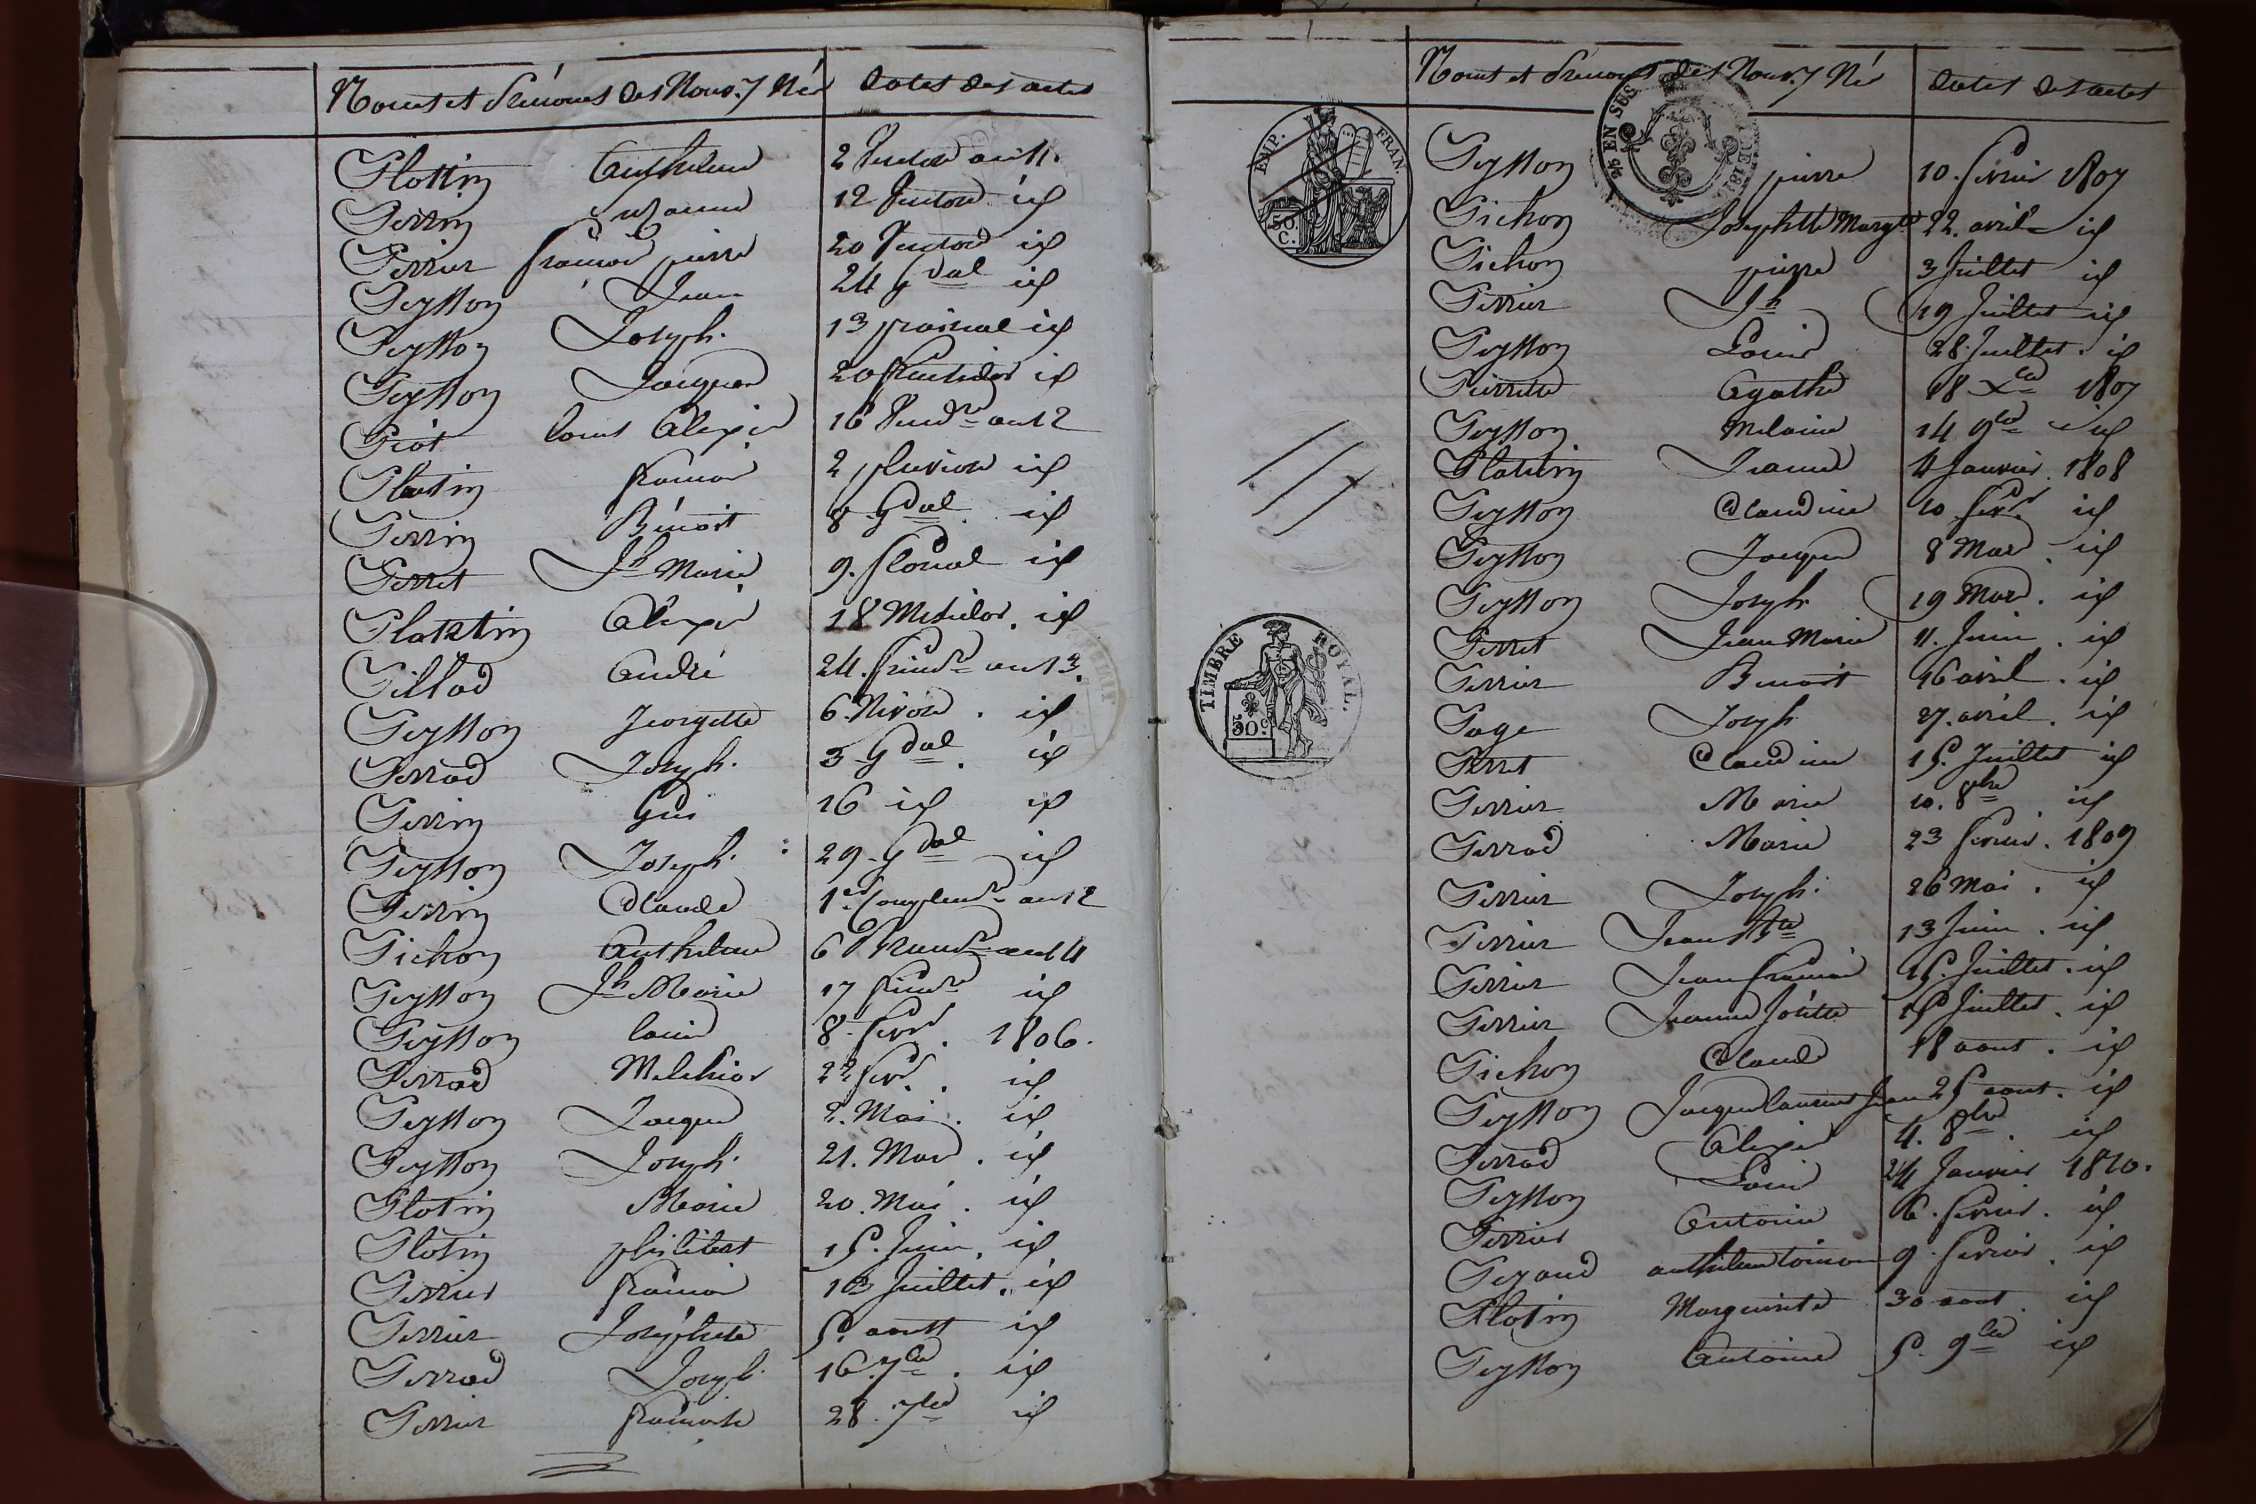 Noms et Prénoms des Nouv. Nés dates des actes
Plottin Anthelme 2 Ventose an 11.
Perrin Suzanne 12 Ventose id
Perrier François pierre 20 Ventose id
Peysson Jean 24 gdal id
Peysson Joseph 13 prairial id
Peysson Jacques 20 fructidor id
Piot louis Alexis 16 Vendre an 12
Plantin françois 2 pluviose id
Perrin Benoit 8 Gdal id
Perret Jh Marie 9. floreal id
Plattin Alexis 18 Messidor. id
Pillod André 24. frimre an 13.
Peysson Georgette 6. Nivose. id
Perrod Joseph 3 Gdal. id
Perrin Guis 16 id id
Peysson Joseph. 29. gdal id
Perrin Claude 1er Complemre an 12
Pichon Anthelme 6 Vendre an 14
Peysson Jh Marie 17 frimre id
Peysson louis 8 fevr. 1806.
Perrod Melchior 22 fevr. id
Peysson Jacques 2. Mai. id
Peysson Joseph. 21. Mars. id
Plotin Marie 20. Mai. id
Plotin philibert 15. Juin. id
Perrier françois 13 Juillet. id
Perrier Josephete 5. aoust id
Perrod Joseph 16. 7bre. id
Perrier françoise 28. 7bre id
Noms et Prénoms des Nouv. Né dates des actes
EMP. FRAN.
50. C.
EN SUS
DE 181
Peysson pierre 10. fevrier 1807
Pichon Josephette Margte 22. avril id
Pichon pierre 3 Juillet id
Perrier Jh 19 Juillet id
Peysson Louis 28. Juillet. id
Pierrette Agathe 18 Xbre 1807
Peysson Melanie 14 9bre id
Plottin Jeanne 4 Janvier. 1808
Peysson Claudine 10 fevr id
Peysson Jacques 8 Mars. id
Peysson Joseph 19 Mars. id
Perret Jean Marie 11. Juin. id
TIMBRE ROYAL.
50c
Perrier Benoit 16 avril. id
Page Joseph 27. avril. id
Perret Claudine 15. Juillet id
Perrier Marie 10. 8bre id
Perrod Marie 23 fevrier. 1809
Perrier Joseph. 26 Mai. id
Perrier Jean Bte 13 Juin. id
Perrier Jean françois 15. Juillet. id
Perrier Jeanne Josette 15 Juillet. id
Pichon Claude 18 aout. id
Peysson Jacques laurent Jean 25 aout. id
Perrod Alexis 4. 8bre. id
Peysson Louis 24 Janvier 1810.
Perrier Antoine 6. fevrier. id
Peyaud 9. fevrier. id
Plotin Marguerite 30 aout. id
Peysson Antoine 5. 9bre id